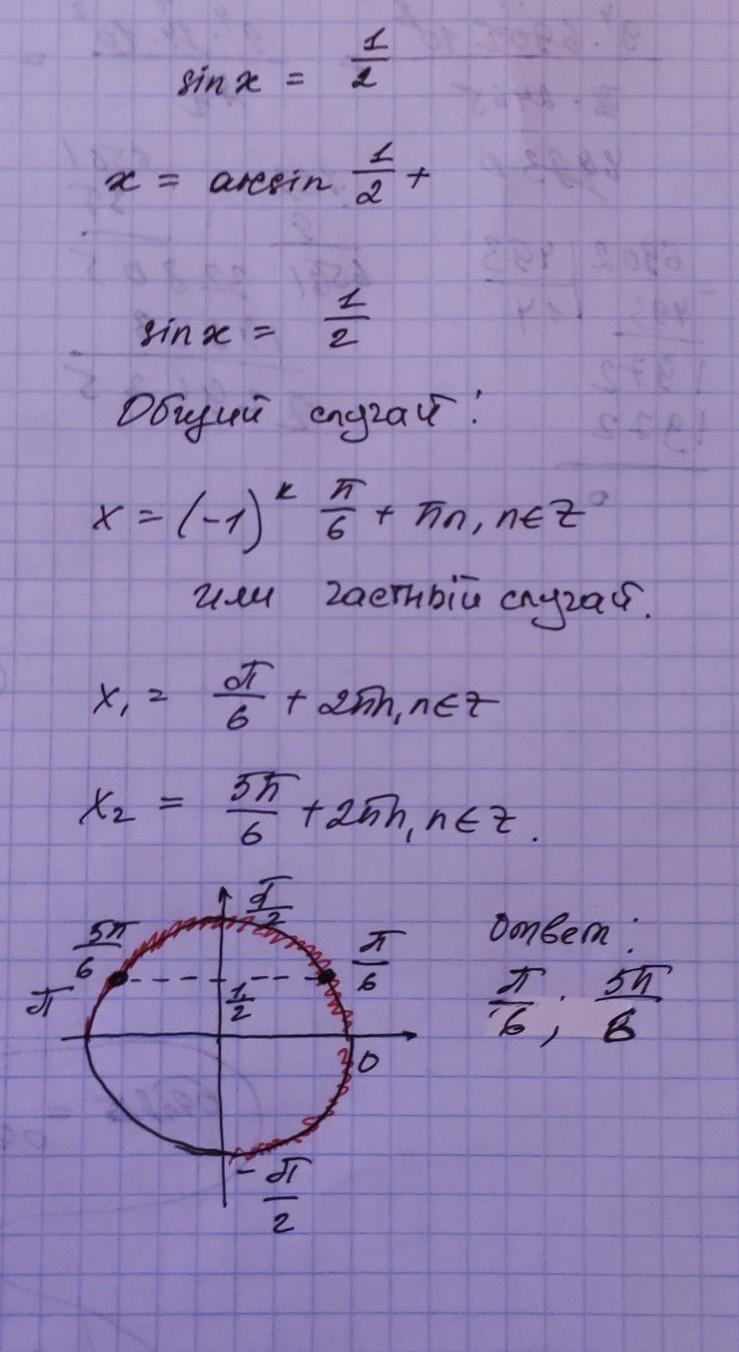 sin x = 1/2
x = arcsin 1/2 +
sin x = 1/2
Общий случай:
x = (-1)^k π/6 + πn, n ∈ Z
или частный случай.
x₁ = π/6 + 2πn, n ∈ Z
x₂ = 5π/6 + 2πn, n ∈ Z.
π/2
5π/6
π/6
π
1/2
0
-π/2
Ответ:
π/6; 5π/6